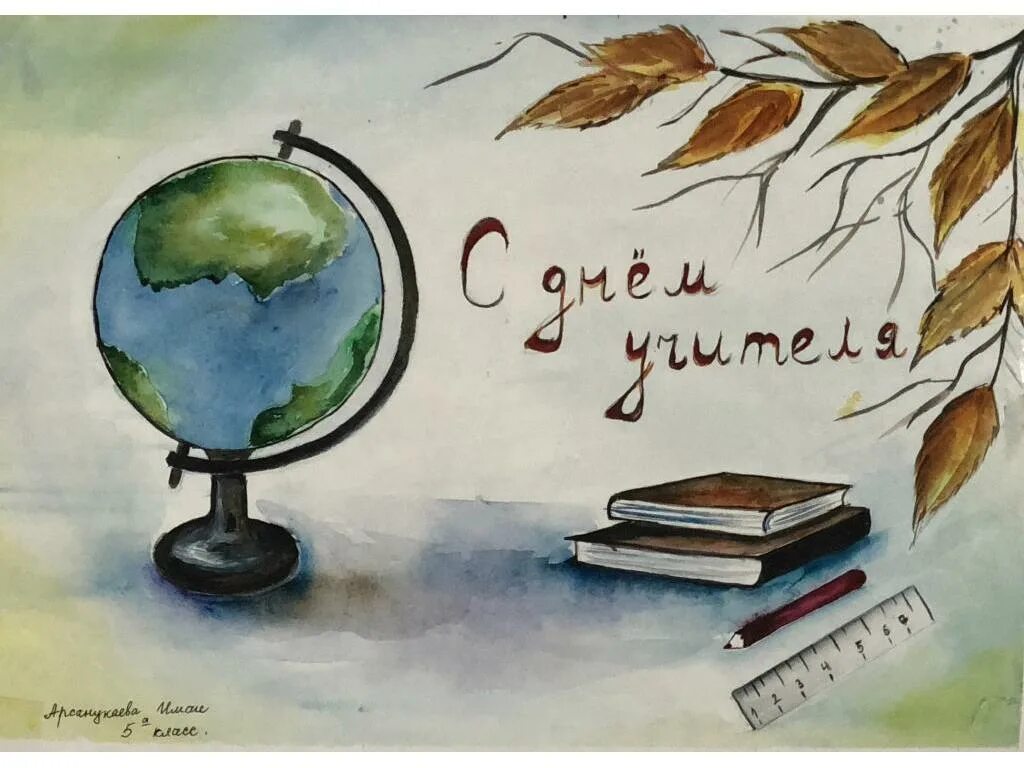 С днём
учителя
1 2 3 4 5 6 7
Арсанукаева Иман
5 а класс.